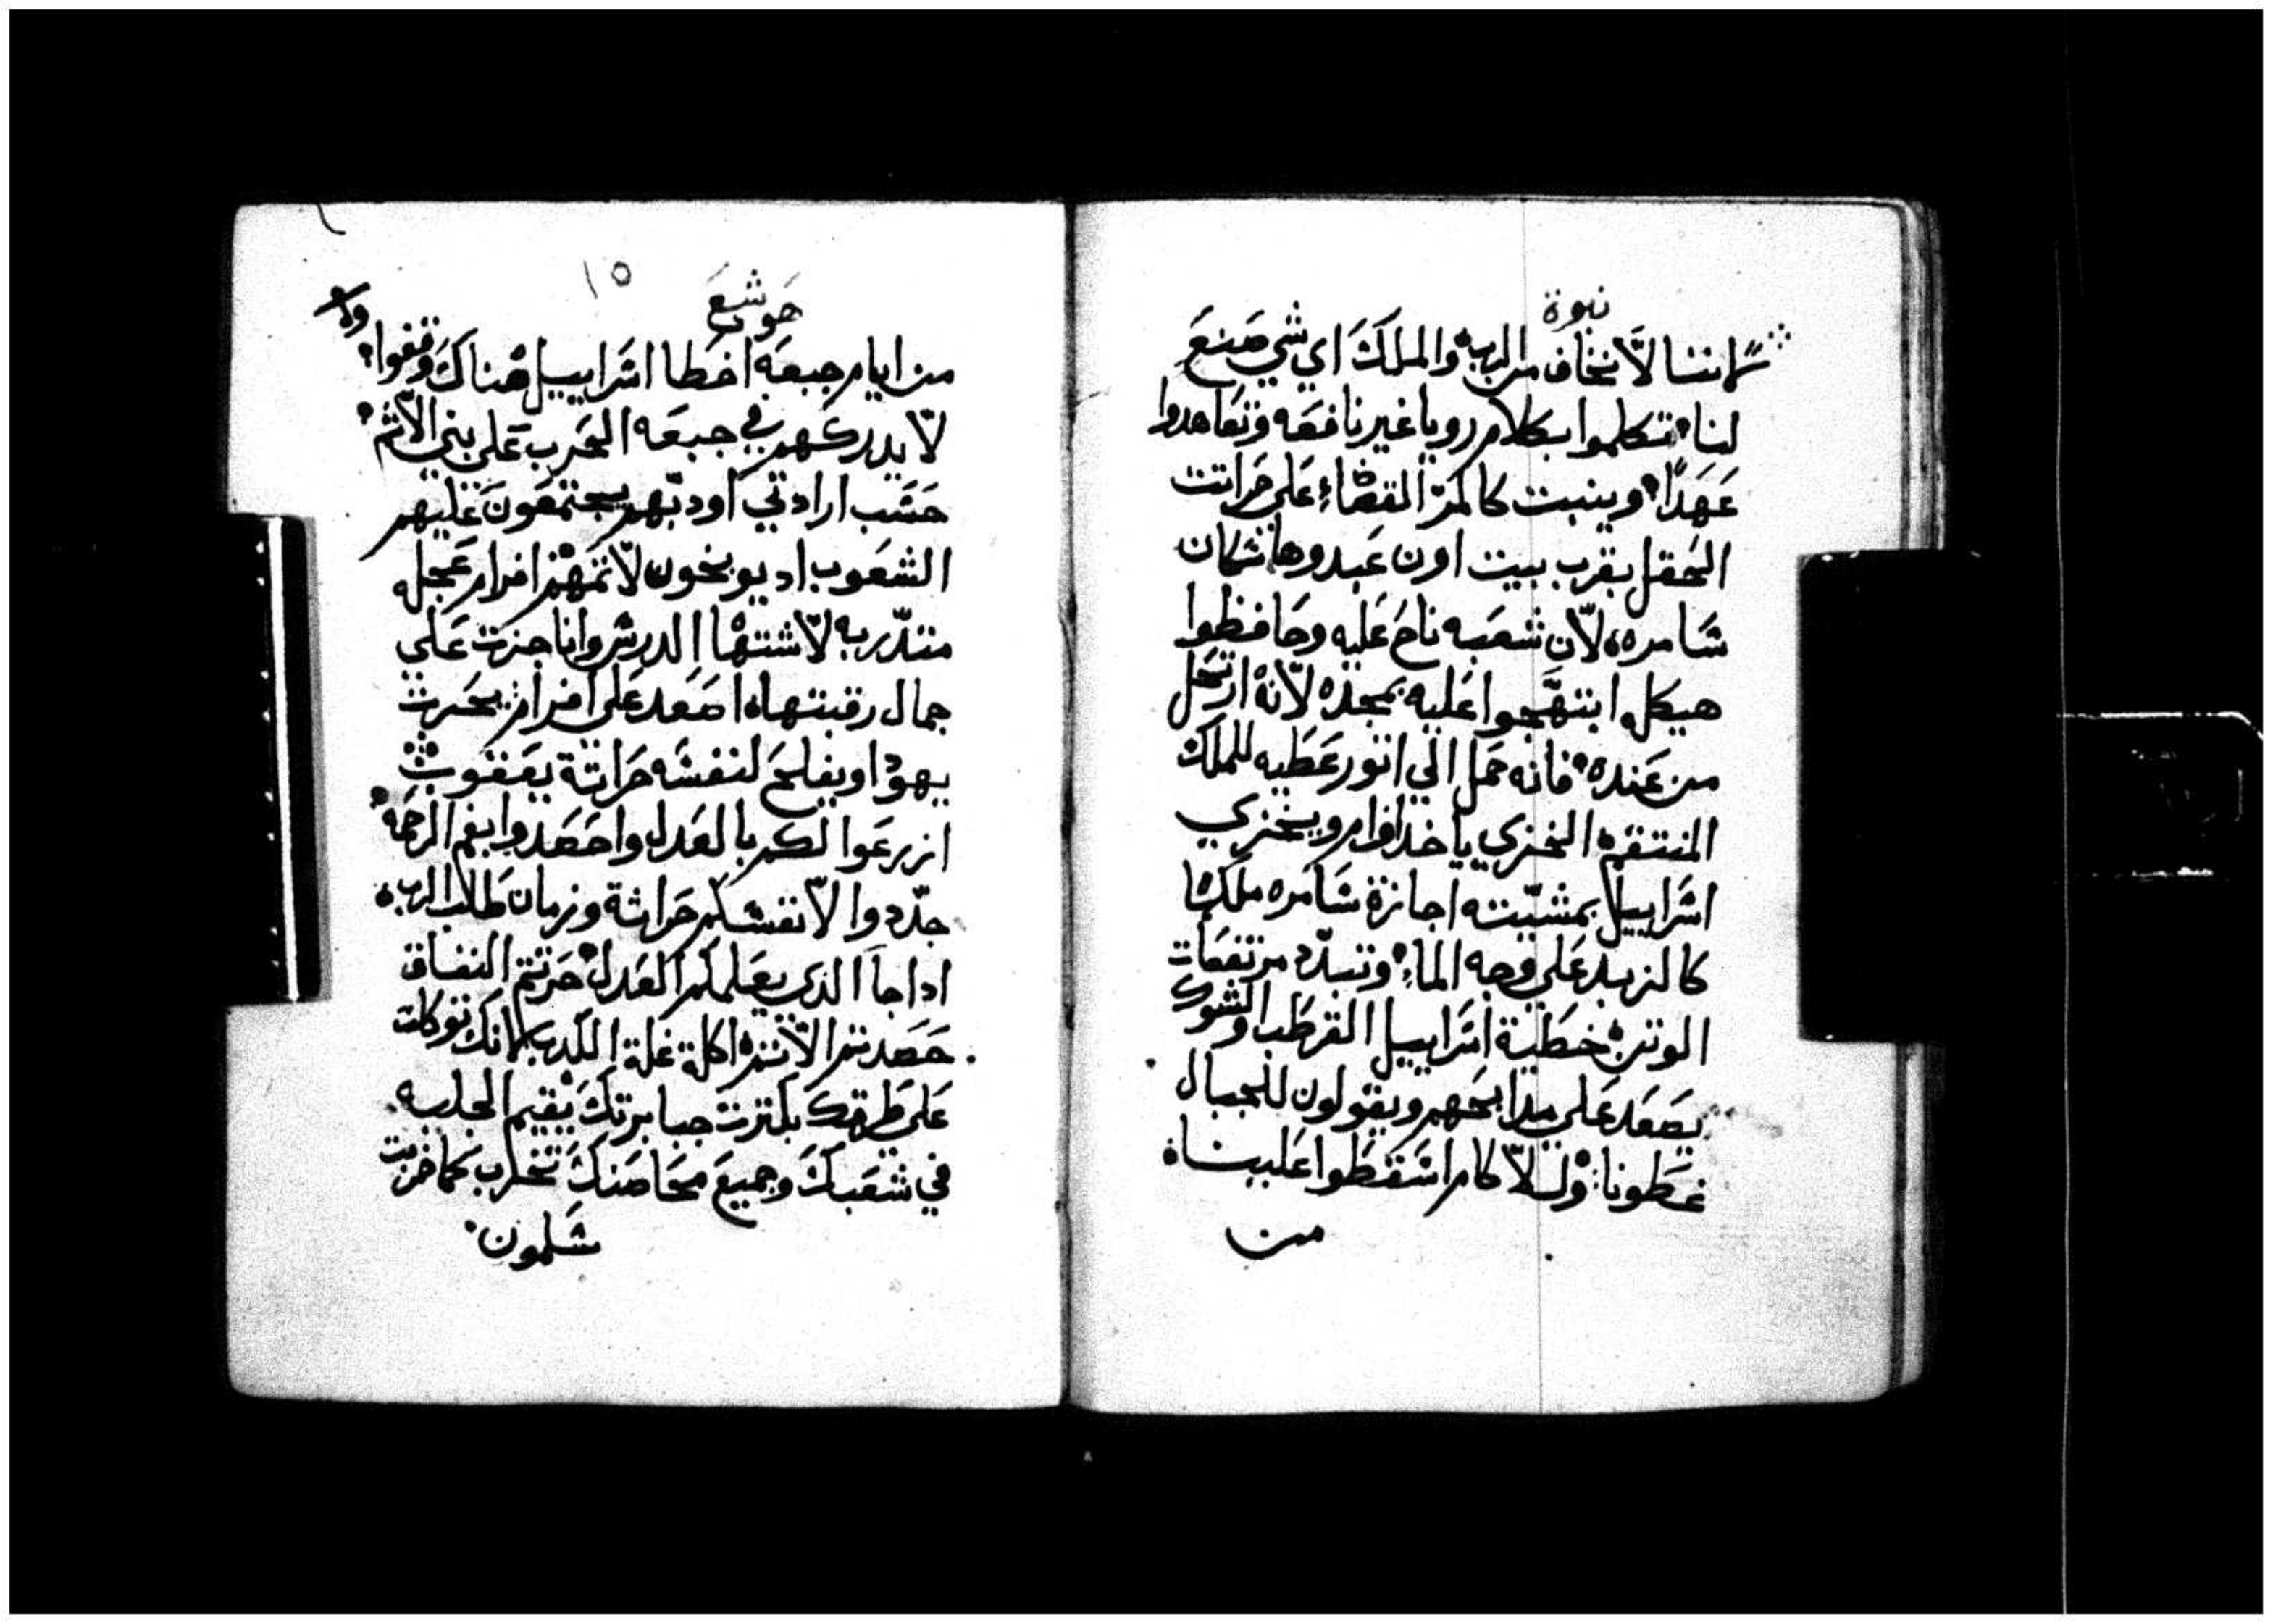 نبوة
لاننا لّا نخاف من الرب والملكَ اي شي صَنعَ
لنا تكلموا بكلام رويا غير نافعَه وتعَاهدوا
عَهَدًا وينبت كالمرّ القضاء عَلى حَراتت
الحَقل بقرب بيت اون عَبدوها سَكان
سَامره لّان شعَبه ناحَ عَليه وحَافظوا
هيكله ابتهَّجوا عَليه بمجده لّانه ارتحَل
من عَنده فانه حَمل الي اتور عَطيه للملك
المنتقم الخزي ياخد افرام ويخزي
اسَراييل بمشيّته اجازة سَامره ملكها
كالزبد عَلى وجه الماء وتبدّد مرتفعَات
الوتن خطَية اسَراييل القرطَب والشوك
يصَعَد عَلى مدابحَهم ويقولون للجبال
غطَونا وللّاكام اسَقطَوا عَلينا
من
حَوشعَ
١٥
من ايام جبعَه اخطَا اسَراييل هناكَ وقفوا
لّا يدركهم في جبعَه الحَرب عَلى بني الّاثم
حَسَب ارادتي اودبّهم يجتمعَون عَليهم
الشعَوب اد يوبخون لّاتمهم افرام عَجله
متدّربه لّاشتها الدرس وانا جزت عَلي
جمال رقبتها اصَعَد عَلى افرام يحَرت
يهودا ويفلحَ لنفسَه حَراتة يعَقوب
ازرعَوا لكم بالعَدل واحَصَدوا بفم الرحَمه
جدّدوا لّانفسَكم حَراثة وزمان طَلب الرب
اداجا الدي يعَلمكم العَدل حَرتتم النفاق
حَصَدتم الّاتم اكلة غلة الكدب لانك توكلت
عَلى طَرقك بكترت جبابرتكَ يقيم الجلبه
في شعَبكَ وجميعَ محَاصَنكَ تخرب كما خربت
سَلمون